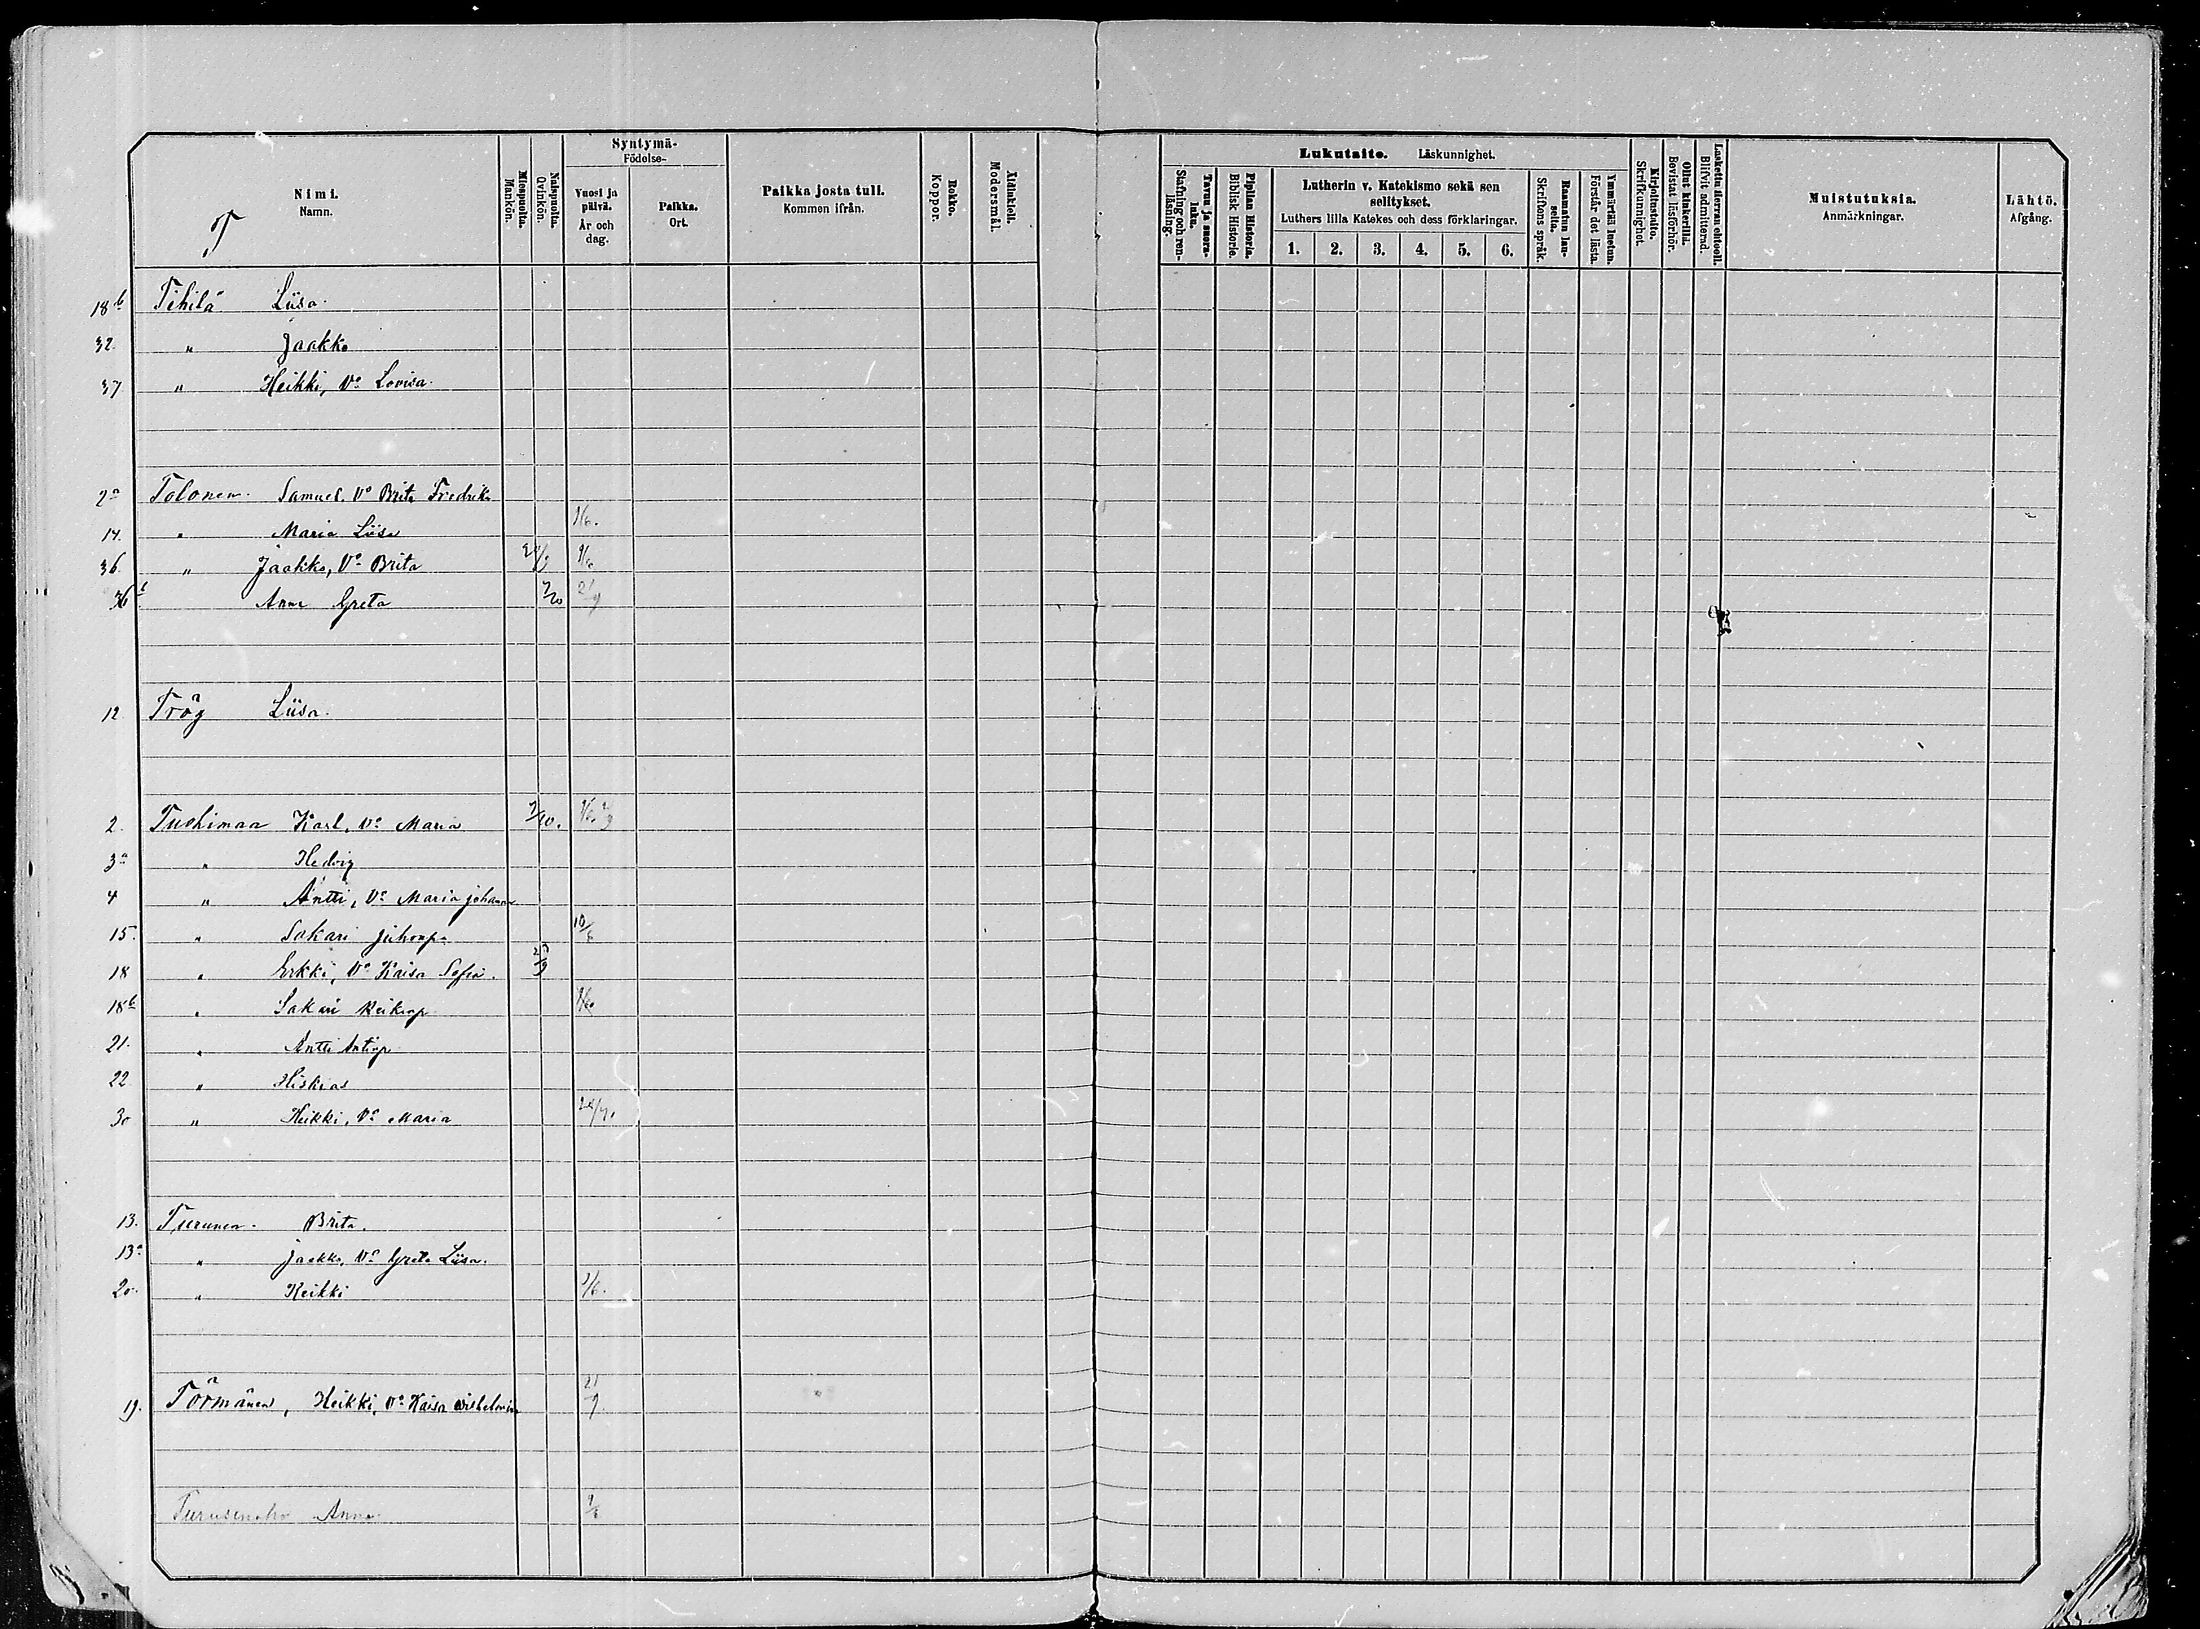 Syntymä-
Födelse-
Lukutaito. Läskunnighet.
Nimi.
Namn.
T
Miespuolia.
Mankön.
Naispuolia.
Qvinkön.
Vuosi ja päivä.
År och dag.
Paikka.
Ort.
Paikka josta tuli.
Kommen ifrån.
Rokko.
Koppor.
Äidinkieli.
Modersmål.
Tavuu ja suora- luku.
Stafning och ren- läsning.
Piplian Historia.
Biblisk Historie.
Lutherin v. Katekismo sekä sen
selitykset.
Luthers lilla Katekes och dess förklaringar.
1. 2. 3. 4. 5. 6.
Raamatun lau- seita.
Skriftens språk.
Ymmärtää luetun.
Förstår det lästa.
Kirjoitustaito.
Skrifkunnighet.
Ollut kinkerillä.
Bevistat läsförhör.
Laskettu Herran ehtool.
Blifvit admitterad.
Muistutuksia.
Anmärkningar.
Lähtö.
Afgång.
18 b Tihilä Liisa.
32. " Jaakko
37 " Heikki, Vo Lovisa.
2a Tolonen. Samuel, Vo Brita Fredrika
14. " Maria Liisa 9/6.
36. " Jaakko, Vo Brita 9/6
36 b Anna Greta 7/10 21/9
12 Trög Liisa.
2. Tuohimaa Karl, Vo Maria 7/10.
3a " Hedvig
4 " Antti, Vo Maria Johanna
15. " Sakari Juhonp. 10/6
18 " Erkki, Vo Kaisa Sofia.
18b " Sakari Heikinp.
21. " Antti Antinp
22 " Hiskias
30 " Heikki, Vo Maria
13. Turunen. Brita.
13a " Jaakko, Vo Greta Liisa.
20. " Heikki
19. Törmänen, Heikki, Vo Kaisa Wilhelmina 21/9.
Anna